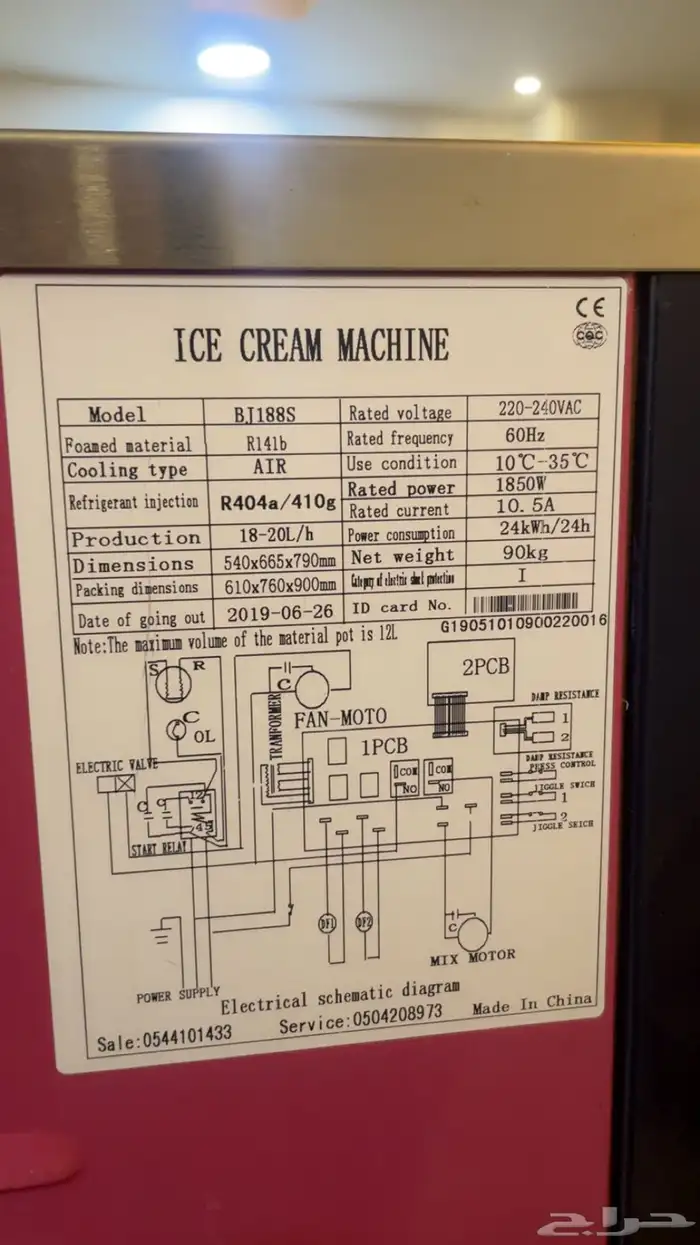 CE
CQC
ICE CREAM MACHINE
Model BJ188S Rated voltage 220-240VAC
Foamed material R141b Rated frequency 60Hz
Cooling type AIR Use condition 10℃-35℃
Refrigerant injection R404a/410g Rated power 1850W
Rated current 10.5A
Production 18-20L/h Power consumption 24kWh/24h
Dimensions 540x665x790mm Net weight 90kg
Packing dimensions 610x760x900mm Category of electric shock protection I
Date of going out 2019-06-26 ID card No.
G19051010900220016
Note:The maximum volume of the material pot is 12L
S R
C
OL
ELECTRIC VALVE
C C
12
45
START RELAY
C
TRANFORMER
FAN-MOTO
2PCB
1PCB
COM
NO
COM
NO
DAMP RESISTANCE
1
2
DAMP RESISTANCE
PRESS CONTROL
JIGGLE SWICH
1
2
JIGGLE SEICH
DF1
DF2
C
MIX MOTOR
POWER SUPPLY
Electrical schematic diagram
Sale:0544101433 Service:0504208973 Made In China
حراج